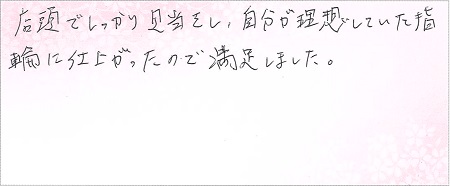 店頭でしっかり見当をし、自分が理想としていた指
輪に仕上がったので満足しました。